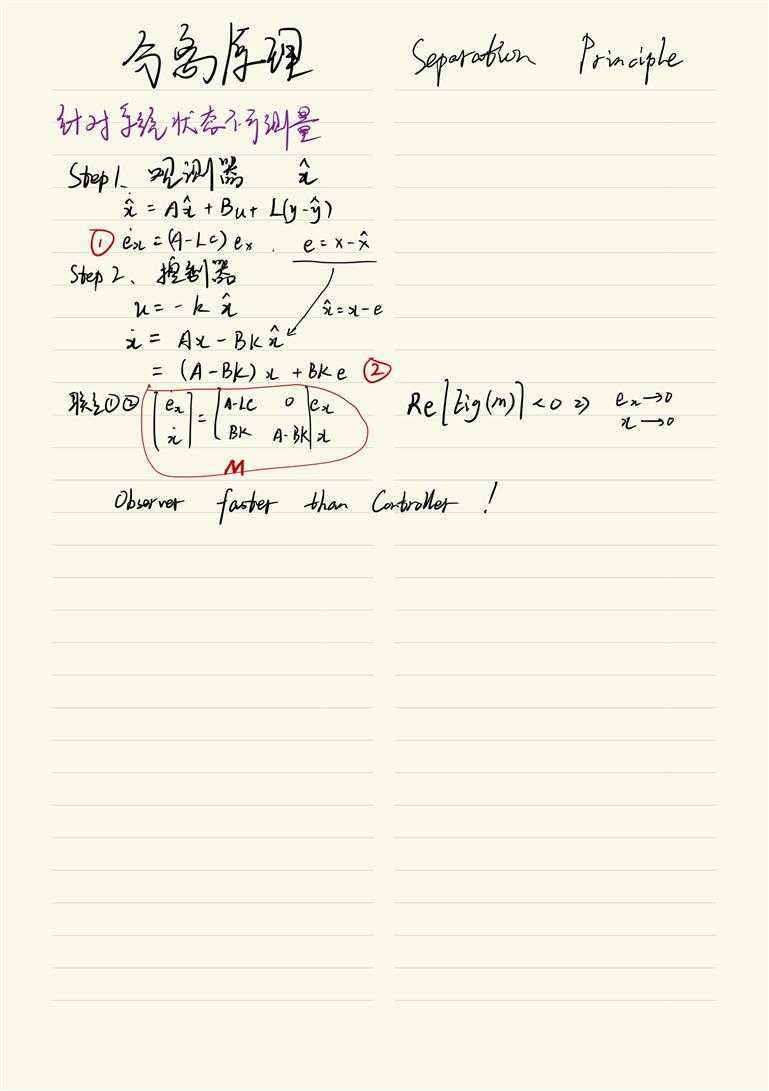 分离原理 Separation Principle
针对系统状态不可测量
Step 1、观测器 x̂
x̂̇ = Ax̂ + Bu + L(y-ŷ)
① ėx = (A-LC) ex . e = x - x̂
Step 2、控制器
u = - k x̂ x̂ = x - e
ẋ = Ax - BKx̂
= (A-BK) x + BKe ②
联立①② [ėx ẋ] = [A-LC 0 BK A-BK] ex x Re[Eig(M)] < 0 ⇒ ex → 0 x → 0
M
Observer faster than Controller !